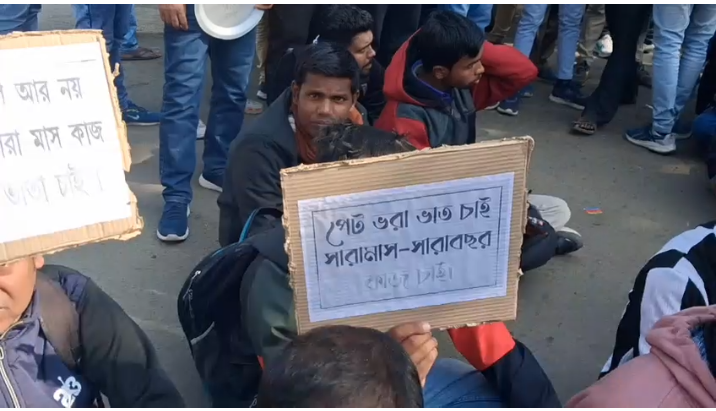 আর নয়
মাস কাজ
ভাতা চাই।
পেট ভরা ভাত চাই
সারামাস-সারাবছর
কাজ চাই।